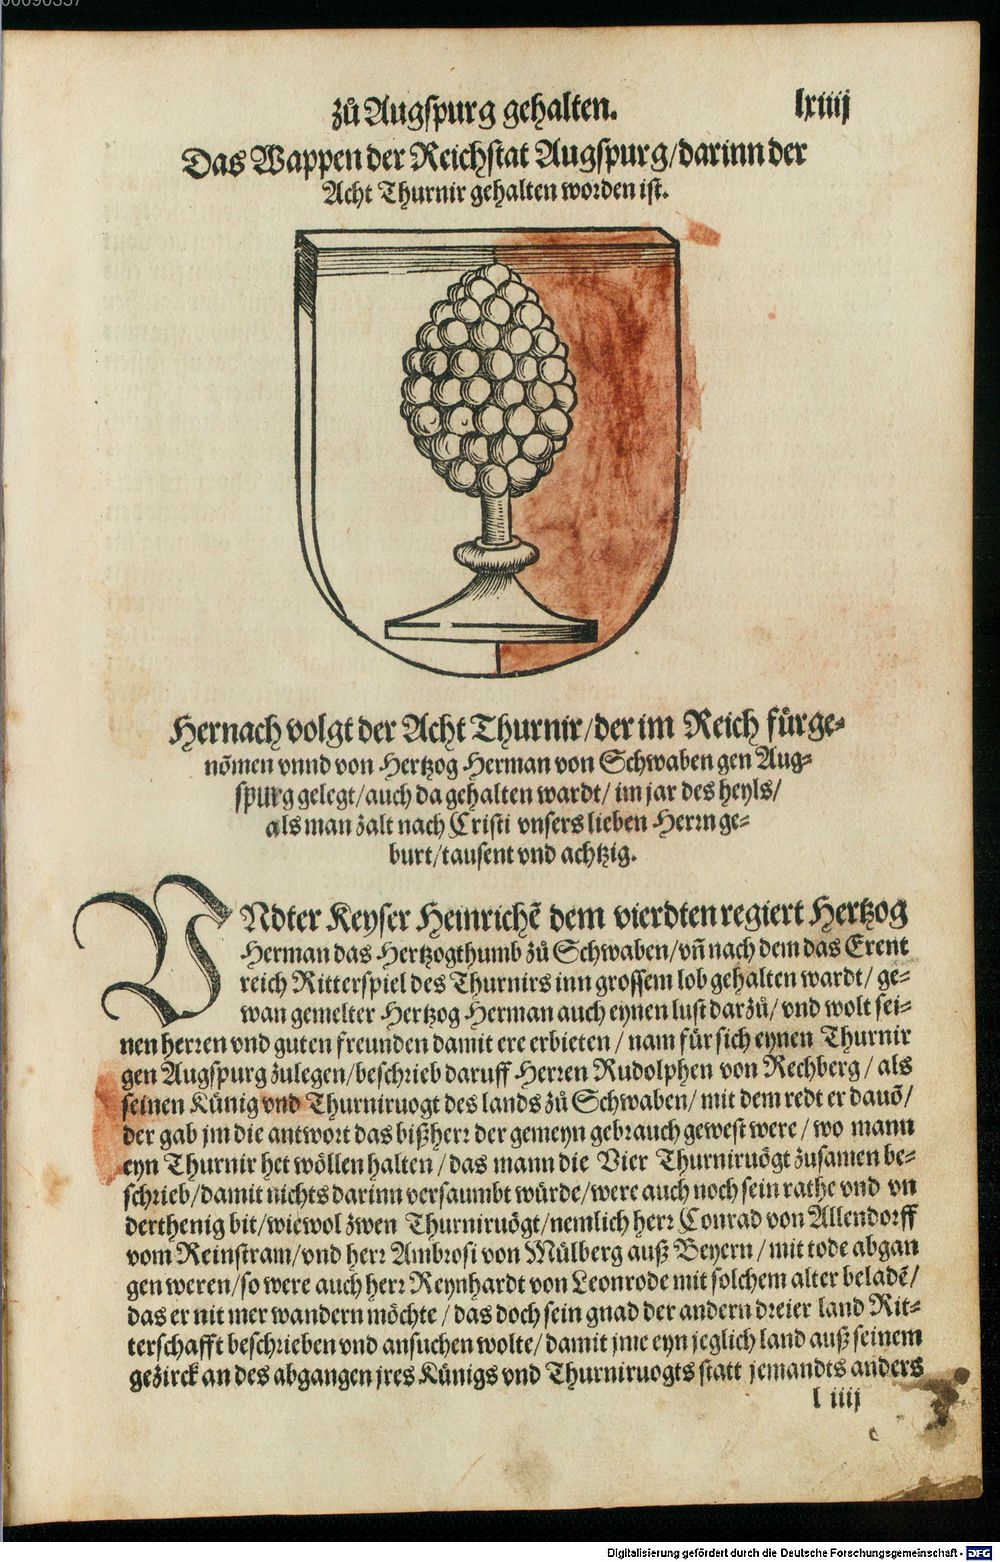 00090357
zů Augspurg gehalten. lxiiij
Das Wappen der Reichstat Augspurg/darinn der
Acht Thurnir gehalten worden ist.
Hernach volgt der Acht Thurnir/der im Reich fürge⸗
nõmen vnnd von Hertzog Herman von Schwaben gen Aug⸗
spurg gelegt/auch da gehalten wardt/im jar des heyls/
als man zalt nach Cristi vnsers lieben Herrn ge⸗
burt/tausent vnd achtzig.
VNdter Keyser Heinrichẽ dem vierdten regiert Hertzog
Herman das Hertzogthumb zů Schwaben/vñ nach dem das Erent
reich Ritterspiel des Thurnirs inn grossem lob gehalten wardt/ge⸗
wan gemelter Hertzog Herman auch eynen lust darzů/vnd wolt sei⸗
nen herren vnd guten freunden damit ere erbieten/nam für sich eynen Thurnir
gen Augspurg zulegen/beschrieb daruff Herren Rudolphen von Rechberg/als
seinen Künig vnd Thurniruogt des lands zů Schwaben/mit dem redt er dauõ/
der gab jm die antwort das bißherr der gemeyn gebrauch gewest were/wo mann
eyn Thurnir het wöllen halten/das mann die Vier Thurniruögt zusamen be⸗
schrieb/damit nichts darinn versaumbt würde/were auch noch sein rathe vnd vn
derthenig bit/wiewol zwen Thurniruögt/nemlich herr Conrad von Allendorff
vom Reinstram/vnd herr Ambrosi von Mülberg auß Beyern/mit tode abgan
gen weren/so were auch herr Reynhardt von Leonrode mit solchem alter beladẽ/
das er nit mer wandern möchte/das doch sein gnad der andern dreier land Rit⸗
terschafft beschrieben vnd ansuchen wolte/damit jme eyn jeglich land auß seinem
gezirck an des abgangen jres Künigs vnd Thurniruogts statt jemandts anders
l iiij
Digitalisierung gefördert durch die Deutsche Forschungsgemeinschaft - DFG